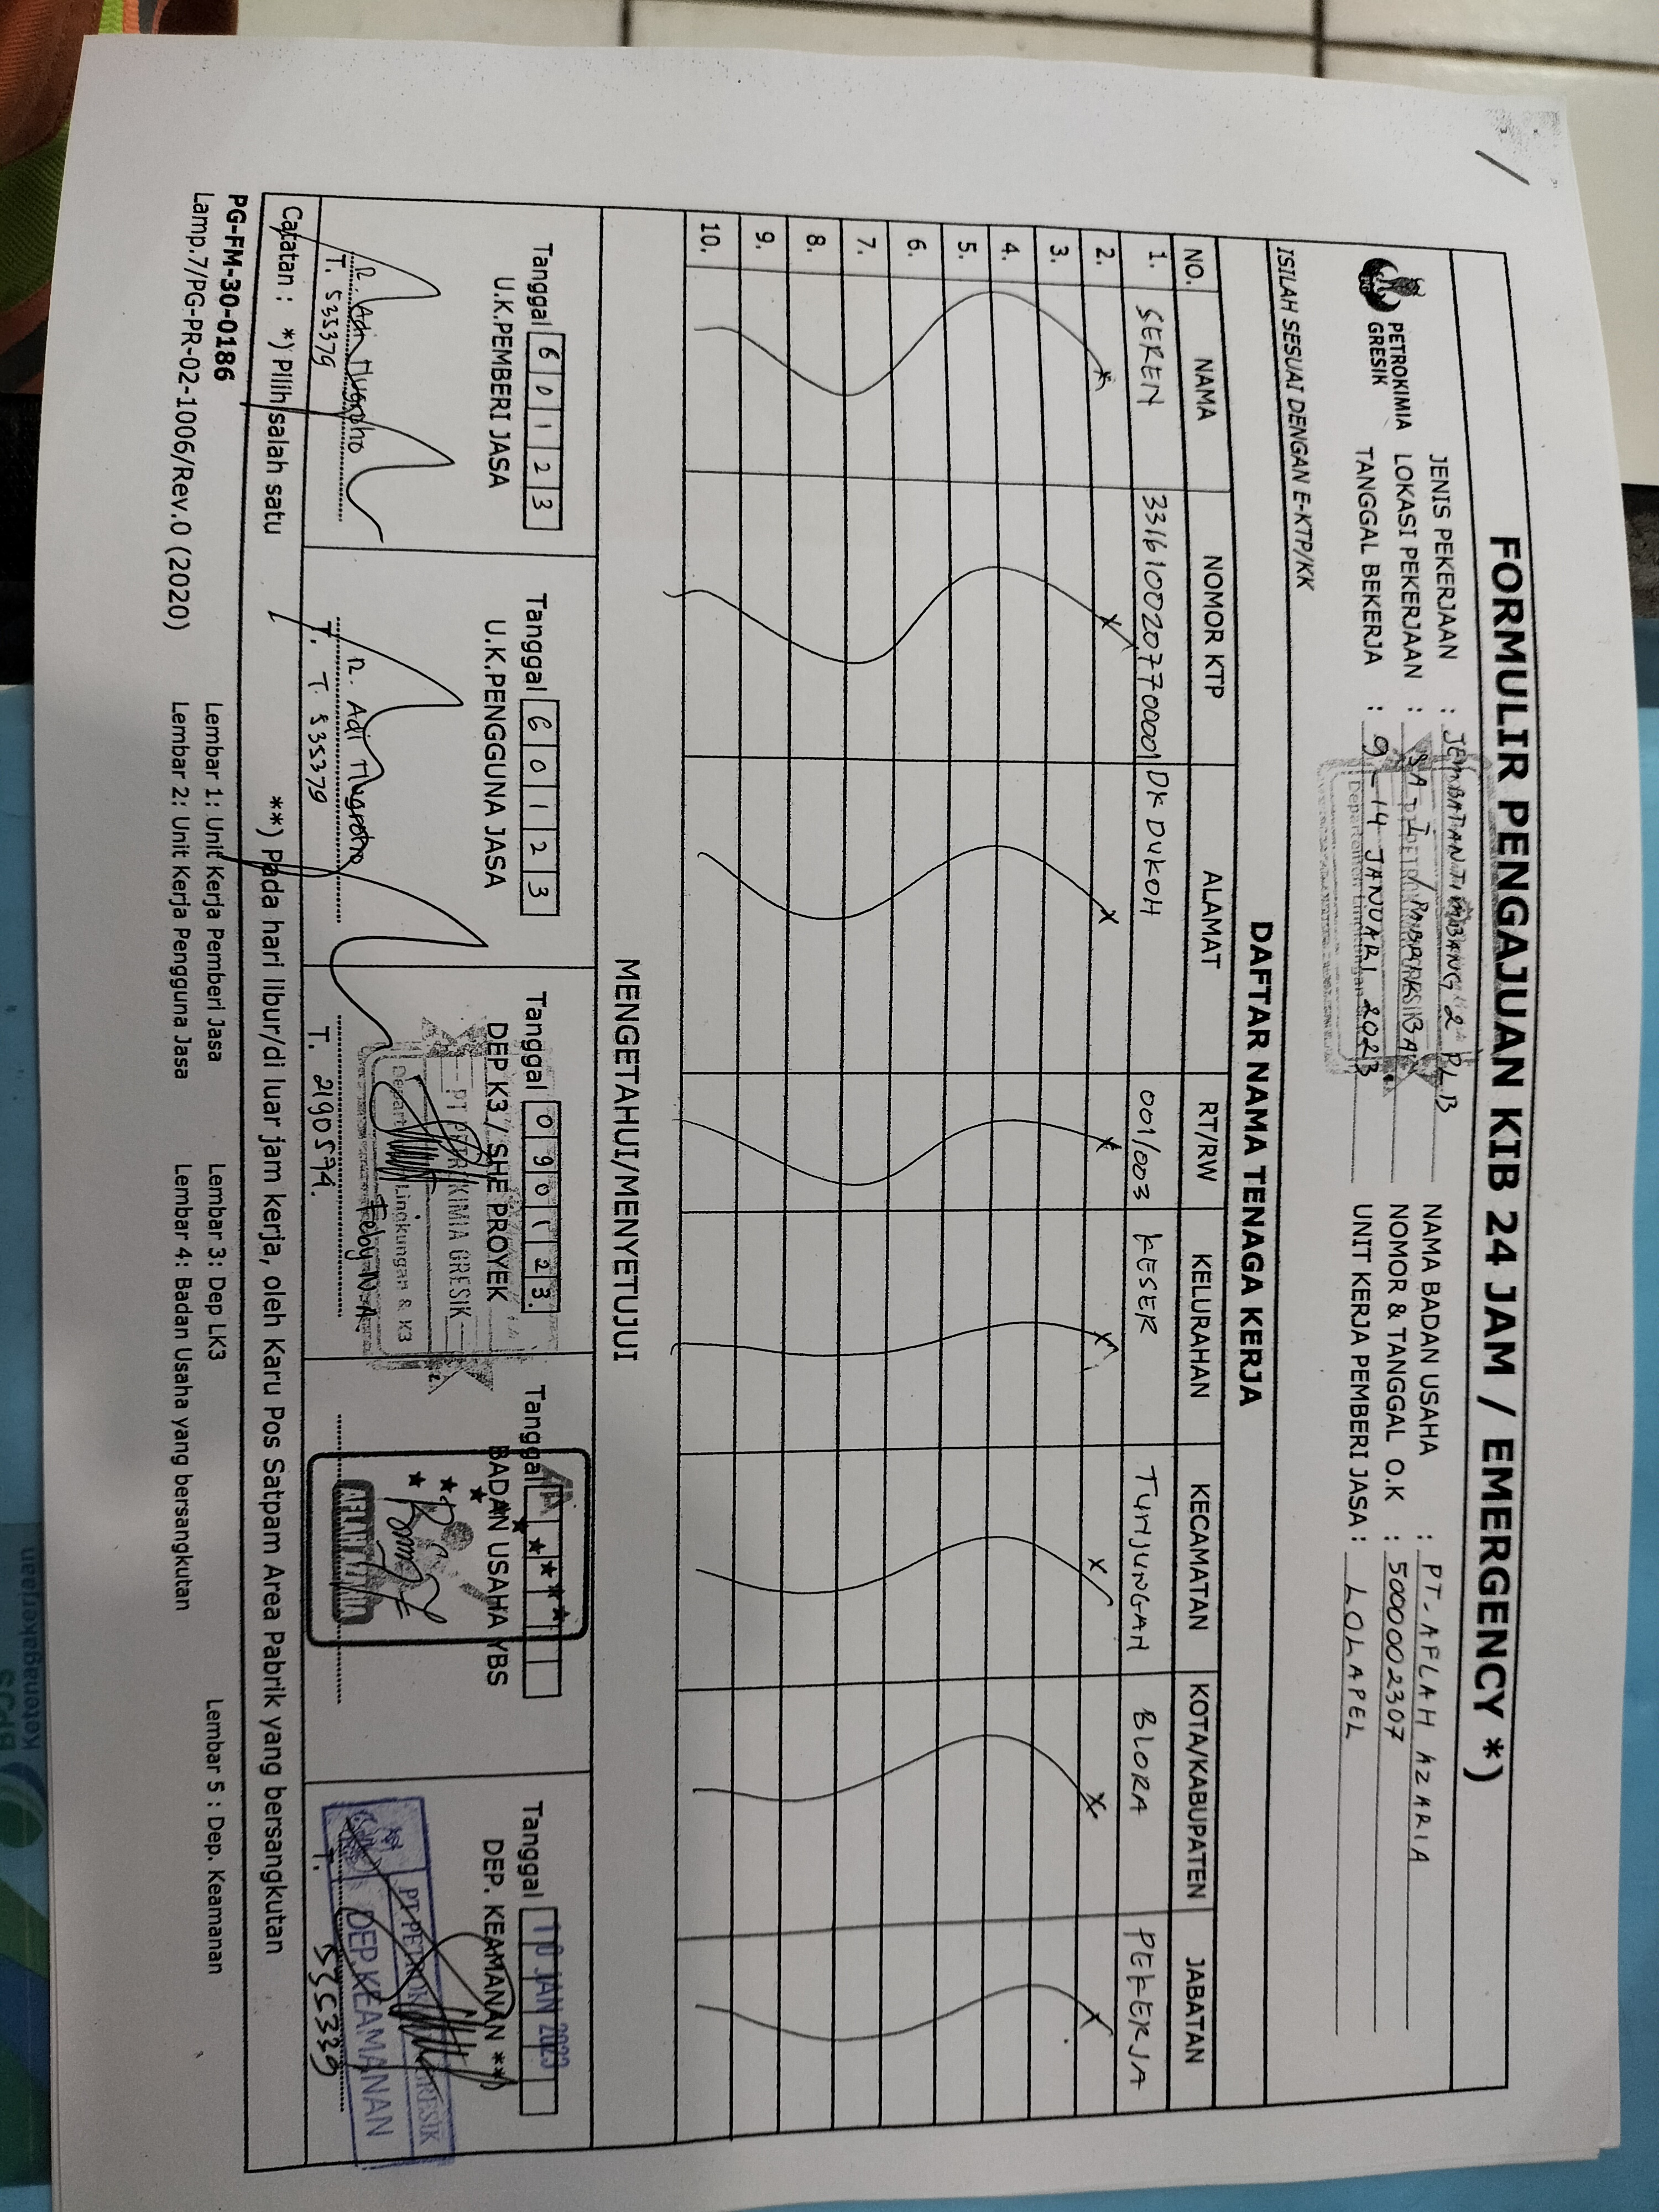 FORMULIR PENGAJUAN KIB 24 JAM / EMERGENCY *)
PETROKIMIA GRESIK
JENIS PEKERJAAN : JEMBATAN TIMBANG 2 PLB
LOKASI PEKERJAAN :
TANGGAL BEKERJA : 9 - 14 JANUARI 2023
NAMA BADAN USAHA : PT. AFLAH AZARIA
NOMOR & TANGGAL O.K : 5000002307
UNIT KERJA PEMBERI JASA : LOLAPEL
ISILAH SESUAI DENGAN E-KTP/KK
DAFTAR NAMA TENAGA KERJA
NO. NAMA NOMOR KTP ALAMAT RT/RW KELURAHAN KECAMATAN KOTA/KABUPATEN JABATAN
1. SEREN 3316100207770001 DK DUKOH 001/003 KESER TUNJUNGAN BLORA PEKERJA
2.
3.
4.
5.
6.
7.
8.
9.
10.
MENGETAHUI/MENYETUJUI
Tanggal 6 0 1 2 3
U.K.PEMBERI JASA
R. Adi Nugroho
T. 535379
Tanggal 6 0 1 2 3
U.K.PENGGUNA JASA
R. Adi Nugroho
T. T. 535379
Tanggal 0 9 0 1 2 3
DEP K3 / SHE PROYEK
PT PETROKIMIA GRESIK
Departemen Lingkungan & K3
Feby N.A
T. 2190594.
Tanggal
BADAN USAHA YBS
AFLAH AZARIA
Tanggal 10 JAN 2023
DEP. KEAMANAN **)
PT PETROKIMIA GRESIK
DEP. KEAMANAN
T. 535339
Catatan : *) Pilih salah satu **) Pada hari libur/di luar jam kerja, oleh Karu Pos Satpam Area Pabrik yang bersangkutan
PG-FM-30-0186
Lamp.7/PG-PR-02-1006/Rev.0 (2020)
Lembar 1: Unit Kerja Pemberi Jasa
Lembar 2: Unit Kerja Pengguna Jasa
Lembar 3: Dep LK3
Lembar 4: Badan Usaha yang bersangkutan
Lembar 5 : Dep. Keamanan
Ketenagakerjaan
BPJS